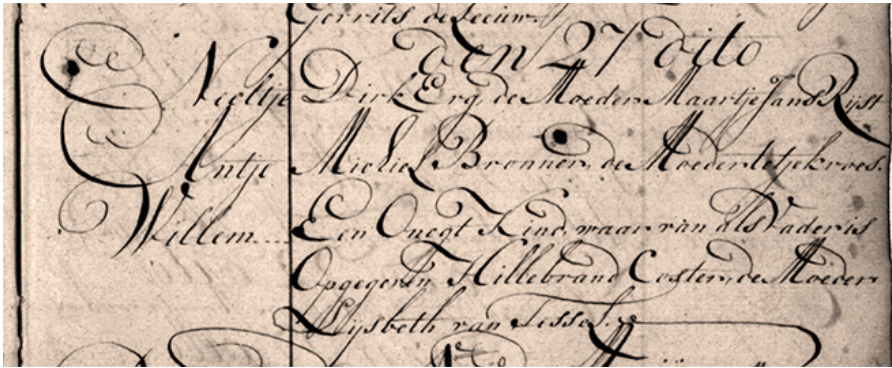 Gerrits de Leeuw.
den 27 dito
Neeltje Dirk Erg, de Moeder Maartje Jans Rijst
Antje Michiel Bronner, de Moeder Letje kroes.
Willem Een Onegt Kind, waar van als Vader is
Opgegeven Hillebrand Coster, de Moeder
Wijsbeth van Tessel.